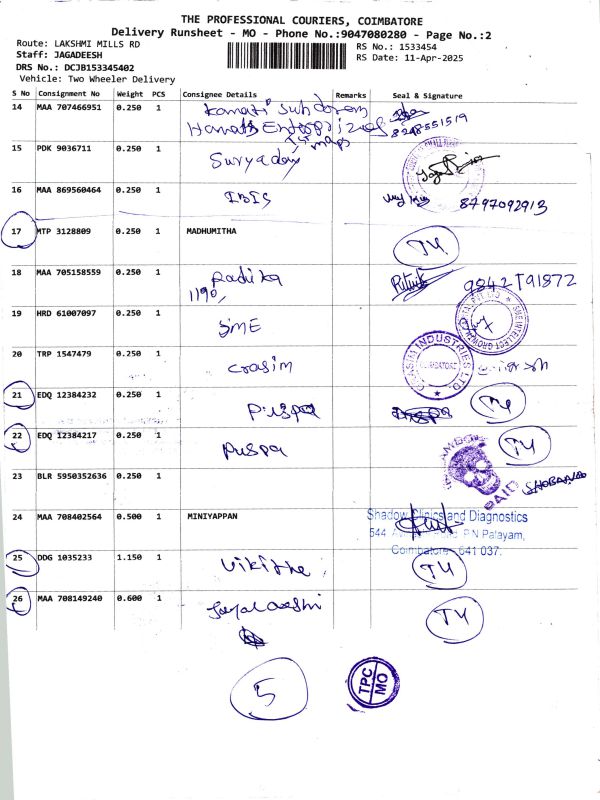 THE PROFESSIONAL COURIERS, COIMBATORE
Delivery Runsheet - MO - Phone No.:9047080280 - Page No.:2
Route: LAKSHMI MILLS RD
Staff: JAGADEESH
DRS No.: DCJB153345402
Vehicle: Two Wheeler Delivery
RS No.: 1533454
RS Date: 11-Apr-2025
S No Consignment No Weight PCS Consignee Details Remarks Seal & Signature
14 MAA 707466951 0.250 1
15 PDK 9036711 0.250 1 Suryadev
16 MAA 869560464 0.250 1 IBIS 8797092913
17 MTP 3128809 0.250 1 MADHUMITHA T4
18 MAA 705158559 0.250 1 Radika
1190/
19 HRD 61007097 0.250 1 SME
20 TRP 1547479 0.250 1 COIMBATORE
21 EDQ 12384232 0.250 1 puspa T4
22 EDQ 12384217 0.250 1 puspa T4
23 BLR 5950352636 0.250 1 PAID SHOBANA
24 MAA 708402564 0.500 1 MINIYAPPAN Shadow Clinics and Diagnostics
544 P.N Palayam,
Coimbatore - 641 037.
25 DDG 1035233 1.150 1 T4
26 MAA 708149240 0.600 1 T4
5
TPC
MO